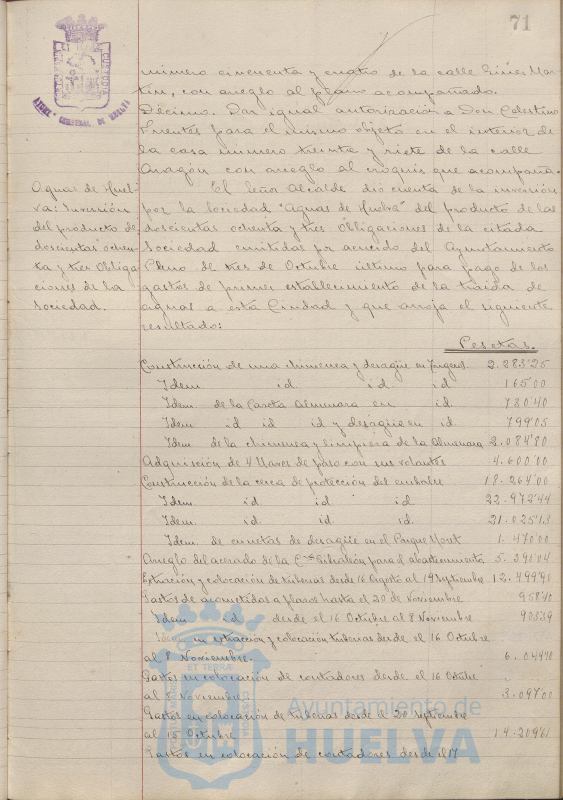 71
número cincuenta y cuatro de la calle Ginés Mar-
tín, con arreglo al plano acompañado.
Décimo. Dar igual autorización a Don Celestino
Puentes para el mismo objeto en el interior de
la casa número treinta y siete de la calle
Aragón con arreglo al croquis que acompaña.
Aguas de Huel-
va: Inversión
del producto de
doscientas ochen-
ta y tres Obliga-
ciones de la
Sociedad.
El Señor Alcalde dió cuenta de la inversión
por la Sociedad "Aguas de Huelva" del producto de las
doscientas ochenta y tres obligaciones de la citada
Sociedad emitidas por acuerdo del Ayuntamiento
Pleno de tres de Octubre último para pago de los
gastos de primer establecimiento de la traída de
aguas a esta Ciudad y que arroja el siguiente
resultado:
Pesetas.
Construcción de una chimenea y desagüe en 2.283'25
Idem id id id 165'00
Idem de la Caseta Almenara en id. 780'40
Idem id id id y desagüe en id. 799'05
Idem de la chimenea y limpieza de la Almenara 2.084'80
Adquisición de 4 llaves de paso con sus volantes 4.600'00
Construcción de la cerca de protección del embalse 18.264'00
Idem id id id 22.972'44
Idem. id. id. id 21.025'13
Idem. de cunetas de desagüe en el Parque Mort 1.470'00
Arreglo del acerado de la para el abastecimiento 5.391'04
Extracción y colocación de tuberías desde 16 Agosto al 19 Septiembre 12.499'91
Gastos de acometidas a plazos hasta el 20 de Noviembre
Idem id desde el 16 Octubre al 8 Noviembre 903'39
Idem en extracción y colocación tuberías desde el 16 Octubre
al 8 Noviembre.
Gastos en colocación de contadores desde el 16 Octubre
al 8 Noviembre 3.097'00
Gastos en colocación de tuberías desde el 20 Septiembre
al 15 Octubre 14.209'61
Gastos en colocación de contadores desde el 17
Ayuntamiento de
HUELVA